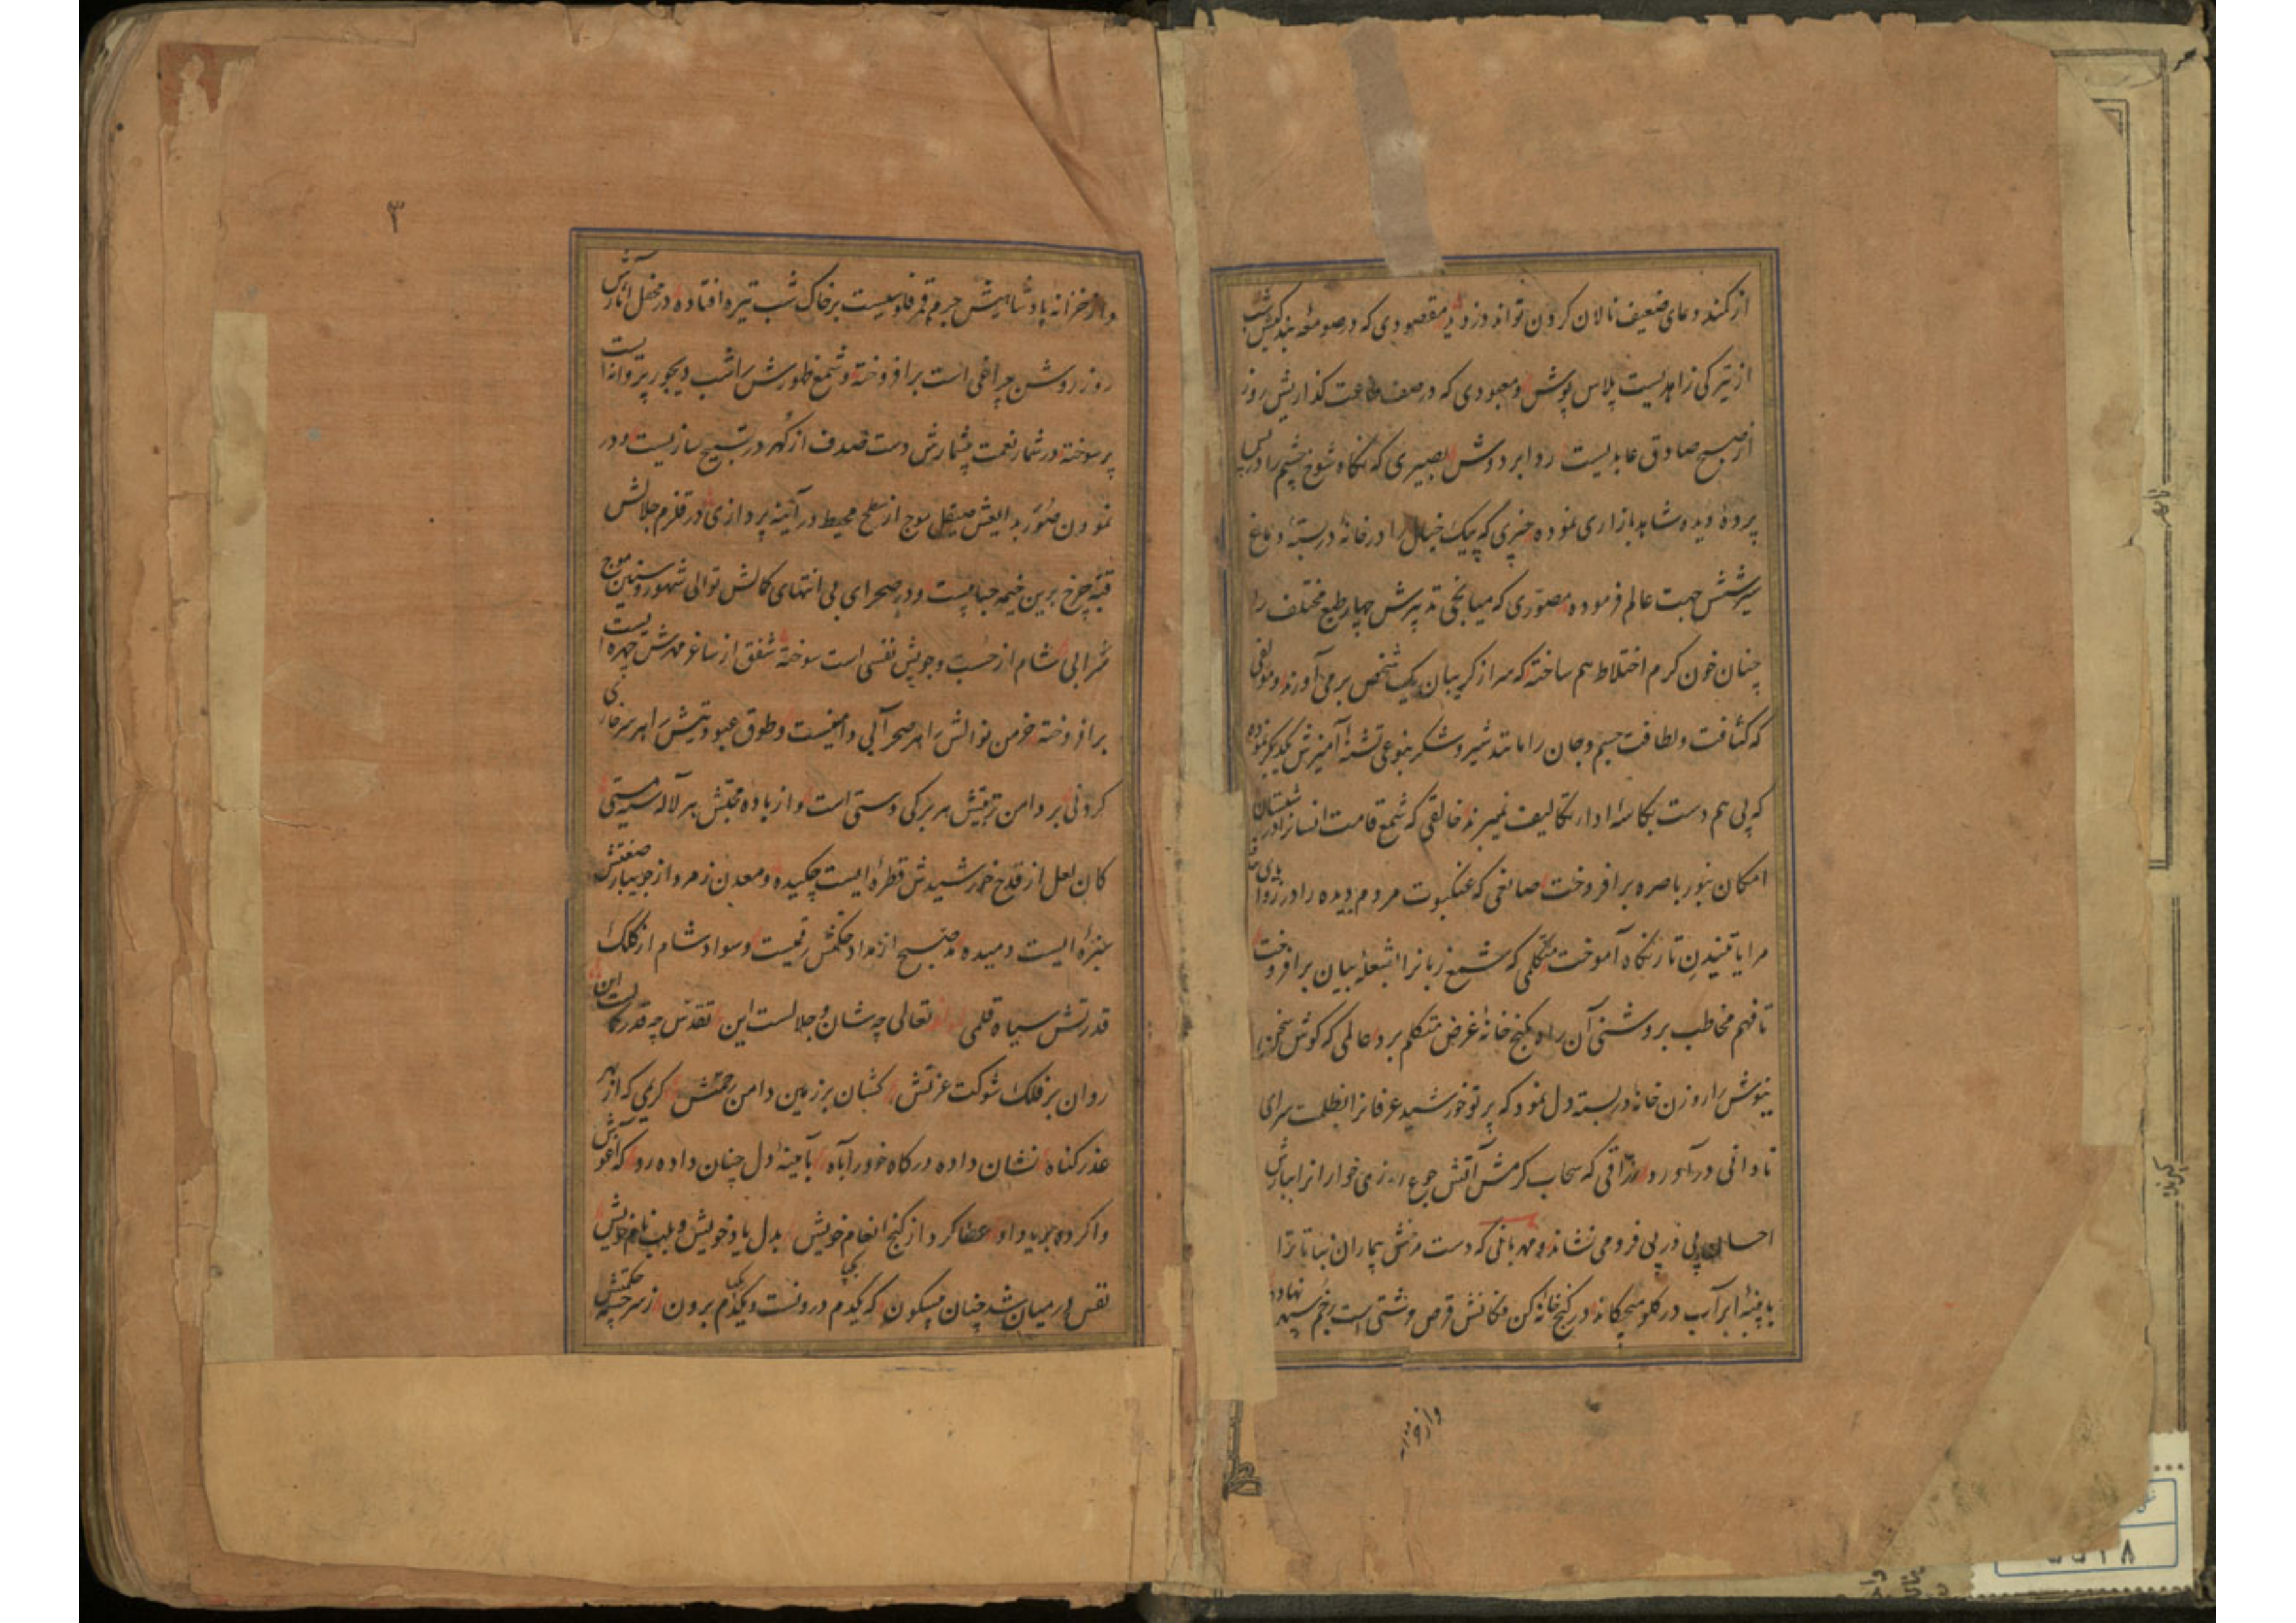 از کمند دعای ضعیف نالان کردن تواند دزدید مقصودی که در صومعه بندکیش شب
از تیرکی زاهدیست پلاس پوش و معبودی که در صف طاعت کذاریش روز
از صبح صادق عابدیست ردا بر دوش بصیری که نکاه شوخ چشم را در پس
پردهٔ دیده شاهد بازاری نموده خبیری که پیک خیال را در خانهٔ دربسته دماغ
سیر شش جهت عالم فرموده مصوّری که میانجی تدبیرش چهار طبع مختلف را
چنان خون کرم اختلاط هم ساخته که سر از کریبان یک شخص برمی آورند و مولفی
که کثافت و لطافت جسم و جان را مانند شیر و شکر بنوعی تشنهٔ آمیزش یکدیکر نموده
که بی هم دست بکاسهٔ ادا تکالیف نمیبرند خالقی که شمع قامت انسانرا در شبستان
امکان بنور باصره برافروخت صانعی که عنکبوت مردم دیده را در زوایای
مرایا تنیدن تار نکاه آموخت متکلمی که شمع زبانرا بشعلهٔ بیان برافروخت
تا فهم مخاطب بروشنی آن راه بکنج خانهٔ غرض متکلم برد عالمی که کوش سخن
نیوش را روزن خانهٔ دربسته دل نمود که پرتو خورشید عرفانرا بظلمت سرای
نادانی درآورد رزّاقی که سحاب کرمش آتش جوع روزی خوارانرا ببارش
احسان پی در پی فرو می نشاند و مهربانی که دست مرحمتش بیماران نباتاترا
به پنبهٔ ابر آب در کلو میچکاند در کنج خانهٔ کن فکانش قرص خشتی است بر خم سپهر نهاده
واز خزانه
۳
و از خزانه پادشاهیش جرم قمر فلوسیست بر خاک شب تیره افتاده در محفل آثارش
روز روشن چراغی است برافروخته و شمع ظهورش را شب دیجور پروانه ایست
پر سوخته در شمار نعمت بیشمارش دست صدف از کهر در تسبیح سازیست و در
نمودن صور بدایعش صیقل موج از سطح محیط در آینه پردازی در قلزم جلالش
قبّهٔ چرخ برین خیمه حبابیست و در صحرای بی انتهای کمالش توالی شهور و سنین موج
سرابی شام از جست و جویش نفسی است سوخته شفق از ساغر مهرش چهره ایست
برافروخته خرمن نوالش را هر صحرایی دامنیست و طوق عبودیتش را هر سرفرازی
کردنی بر دامن تربیتش هر برکی دستی است و از باده محبتش هر لاله سیه مستی
کان لعل از قدح خورشیدش قطرهٔ ایست چکیده و معدن زمرد از جویبار صنعتش
سبزهٔ ایست دمیده صبح از مداد حکمتش رقمیست و سواد شام از کلک
قدرتش سیاه قلمی تعالی چه شان و جلالست این تقدّس چه قدر کمالست این
روان بر فلک شوکت عزّتش کشان بر زمین دامن رحمتش کریمی که از بهر
عذر کناه نشان داده درکاه خود را به آه بآیینهٔ دل چنان داده رو که آغوش
وا کرده بر یاد او عطا کرد از کنج انعام خویش بدل یاد خویش و بلب نام خویش
نفس در میان شد چنان بیسکون که یکدم درونست و یکدم برون ز سرچشمه حکمتش